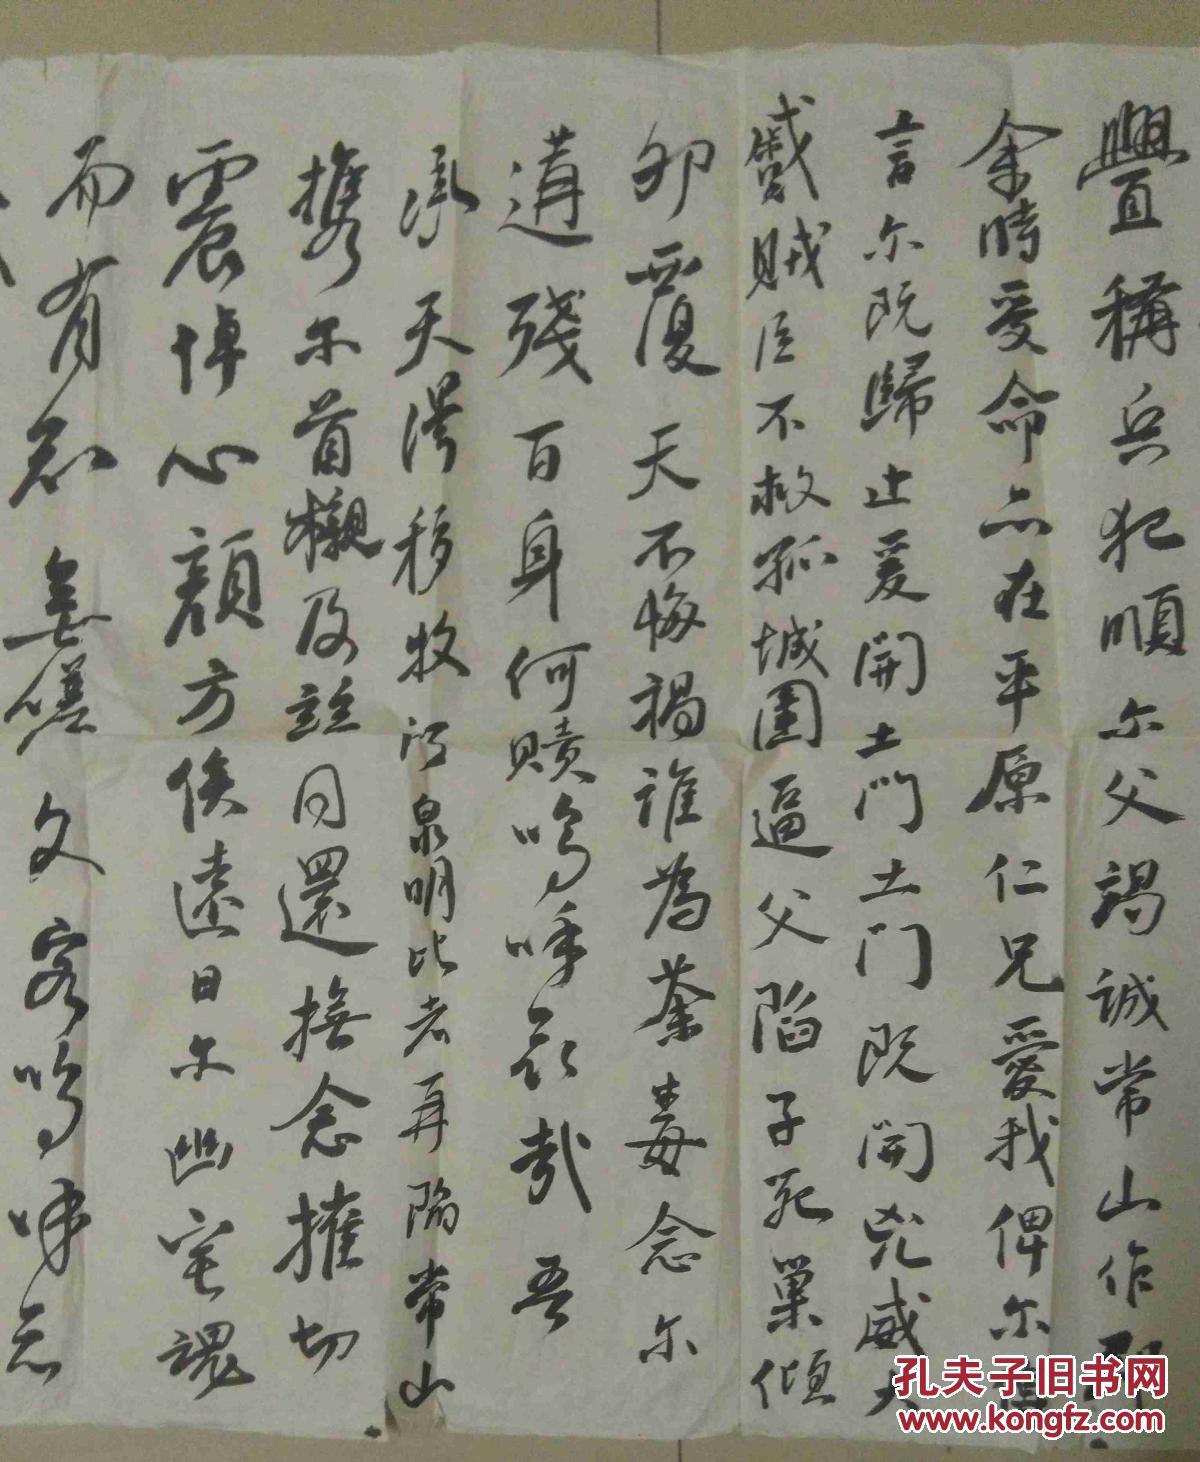 舋稱兵犯順尔父竭誠常山作郡
余時受命亦在平原仁兄愛我俾尔傳
言尔既歸止爰開土門土门既開兇威大
蹙賊臣不救孤城圍逼父陷子死巢傾
卵覆天不悔禍誰為荼毒念尔
遘殘百身何贖嗚呼哀哉吾
承天澤移牧河泉明比者再陷常山
携尔首櫬及兹同還撫念摧切
震悼心顏方俟遠日尔幽宅魂
而有知無嗟久客嗚呼哀
孔夫子旧书网
www.kongfz.com